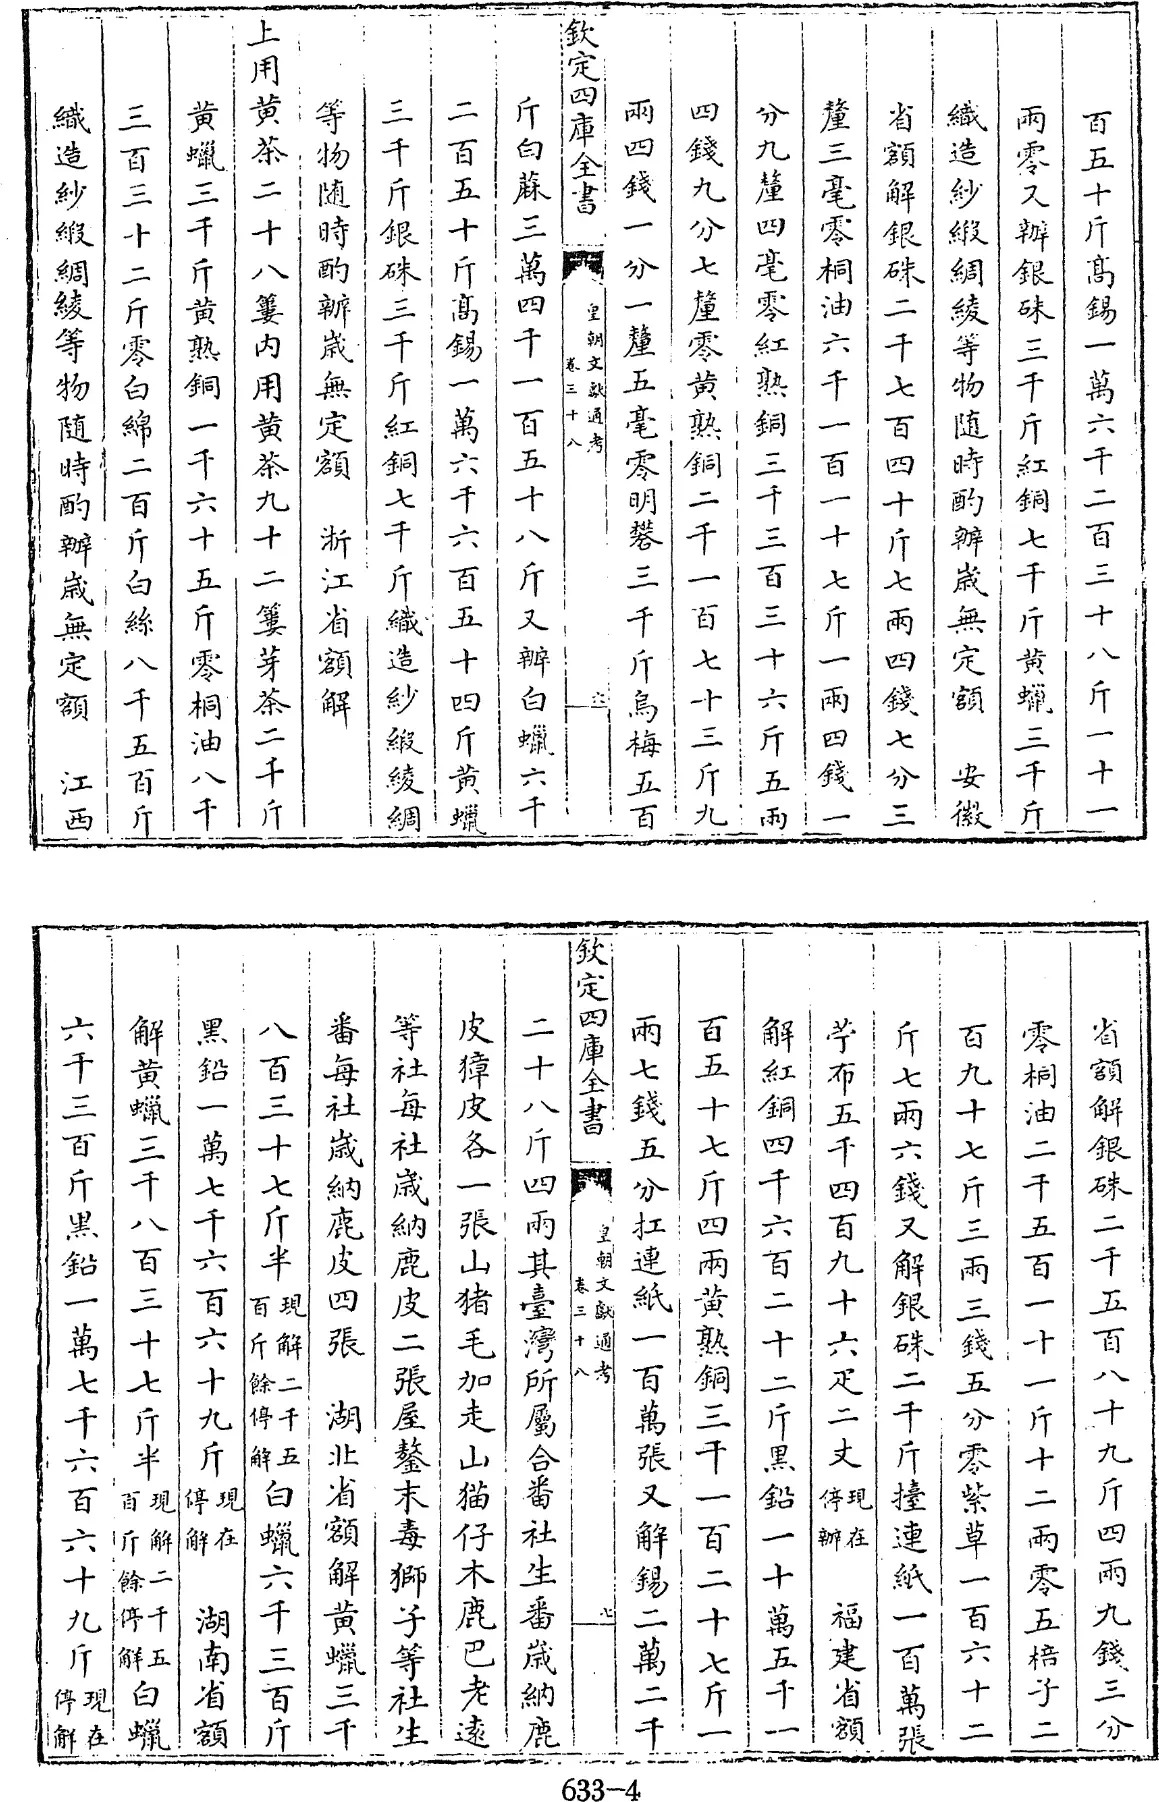 百五十斤高錫一萬六千二百三十八斤一十一
兩零又辦銀硃三千斤紅銅七千斤黃蠟三千斤
織造紗緞綢綾等物隨時酌辦歲無定額　安徽
省額解銀硃二千七百四十斤七兩四錢七分三
釐三毫零桐油六千一百一十七斤一兩四錢一
分九釐四毫零紅熟銅三千三百三十六斤五兩
四錢九分七釐零黃熟銅二千一百七十三斤九
兩四錢一分一釐五毫零明礬三千斤烏梅五百
欽定四庫全書
皇朝文獻通考
卷三十八
六
斤白蔴三萬四千一百五十八斤又辦白蠟六千
二百五十斤高錫一萬六千六百五十四斤黃蠟
三千斤銀硃三千斤紅銅七千斤織造紗緞綾綢
等物隨時酌辦歲無定額　浙江省額解
上用黃茶二十八簍內用黃茶九十二簍芽茶二千斤
黃蠟三千斤黃熟銅一千六十五斤零桐油八千
三百三十二斤零白綿二百斤白絲八千五百斤
織造紗緞綢綾等物隨時酌辦歲無定額　江西
省額解銀硃二千五百八十九斤四兩九錢三分
零桐油二千五百一十一斤十二兩零五棓子二
百九十七斤三兩三錢五分零紫草一百六十二
斤七兩六錢又解銀硃二千斤擡連紙一百萬張
苧布五千四百九十六疋二丈現在停辦　福建省額
解紅銅四千六百二十二斤黑鉛一十萬五千一
百五十七斤四兩黃熟銅三千一百二十七斤一
兩七錢五分扛連紙一百萬張又解錫二萬二千
欽定四庫全書
皇朝文獻通考
卷三十八
七
二十八斤四兩其臺灣所屬合番社生番歲納鹿
皮獐皮各一張山猪毛加走山猫仔木鹿巴老遠
等社每社歲納鹿皮二張屋鏊末毒獅子等社生
番每社歲納鹿皮四張　湖北省額解黃蠟三千
八百三十七斤半現解二千五百斤餘停解白蠟六千三百斤
黑鉛一萬七千六百六十九斤現在停解　湖南省額
解黃蠟三千八百三十七斤半現解二千五百斤餘停解白蠟
六千三百斤黑鉛一萬七千六百六十九斤現在停解
633-4